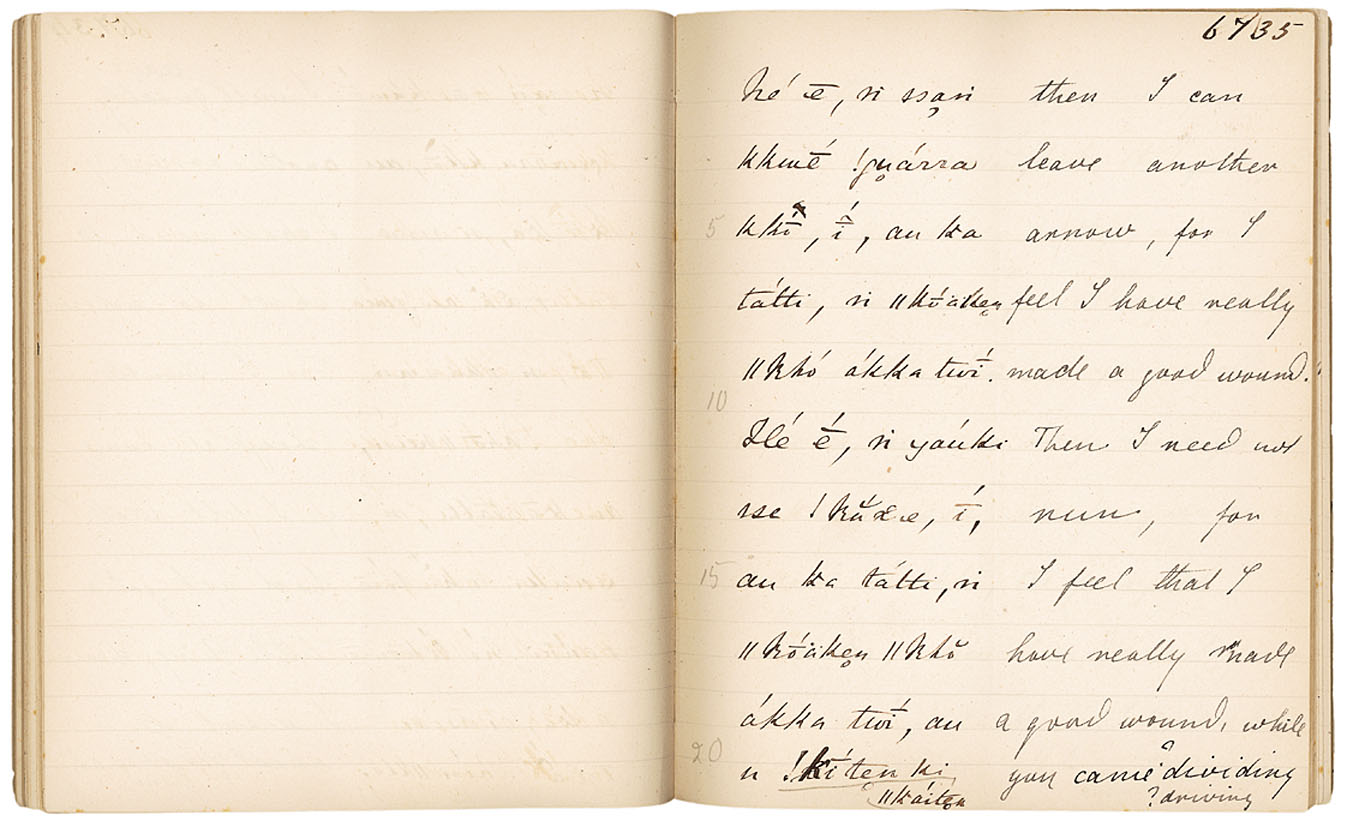 6735
hé ē, ń ssạn̄ then I can
kkwḗ !gụárra leave another
5 kkī̆, ī́, au ka arrow, for I
tátti, ń ǁkṓäkẹn feel I have really
ǁkhó ákka twī́. made a good wound."
10
Hé ḗ, ń yaúki Then I need not
sse !kŭ́χe, ī́, run, for
15 au ka tátti, ń I feel that I
ǁkṓäkẹn ǁkhŏ have really made
ákka twī́, au a good wound, while
20 u !kī́ten ki you came ? dividing
ǁkáitẹn ? driving